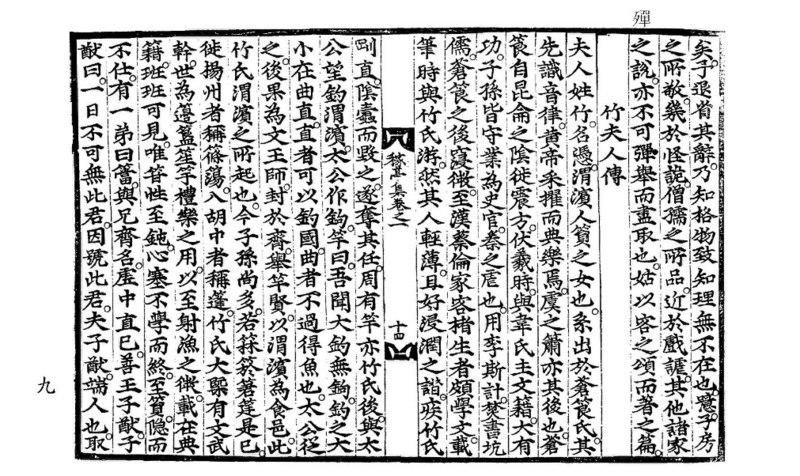 殫
矣予退省其辭乃知格物致知理無不在也噫子房
之所敬幾於怪說僧孺之所品近於戲謔其他諸家
之說亦不可殫舉而盡取也姑以容之頌而著之篇
竹夫人傳
夫人姓竹名憑渭濱人篔之女也系出於蒼筤氏其
先識音律黃帝采擢而典樂焉虞之簫亦其後也蒼
筤自昆侖之陰徙震方伏羲時與韋氏主文籍大有
功子孫皆守業為史官秦之虐也用李斯計焚書坑
儒蒼筤之後寖微至漢蔡倫家客楮生者頗學文載
筆時與竹氏游然其人輕薄且好浸潤之譖疾竹氏
稼亭集卷之一 十四
剛直陰蠹而毀之遂奪其任周有竿亦竹氏後與太
公望釣渭濱太公作鉤竿曰吾聞大釣無鉤釣之大
小在曲直直者可以釣國曲者不過得魚也太公從
之後果為文王師封於齊舉竿賢以渭濱為食邑此
竹氏渭濱之所起也今子孫尚多若箖箊是已
徙揚州者稱篠簜入胡中者稱蓬竹氏大槩有文武
幹世為籩簋笙竽禮樂之用以至射漁之微載在典
籍班班可見唯性至鈍心塞不學而終至篔隱而
不仕有一弟曰簹與兄齊名虛中直己善王子猷子
猷曰一日不可無此君因號此君夫子猷端人也取
九